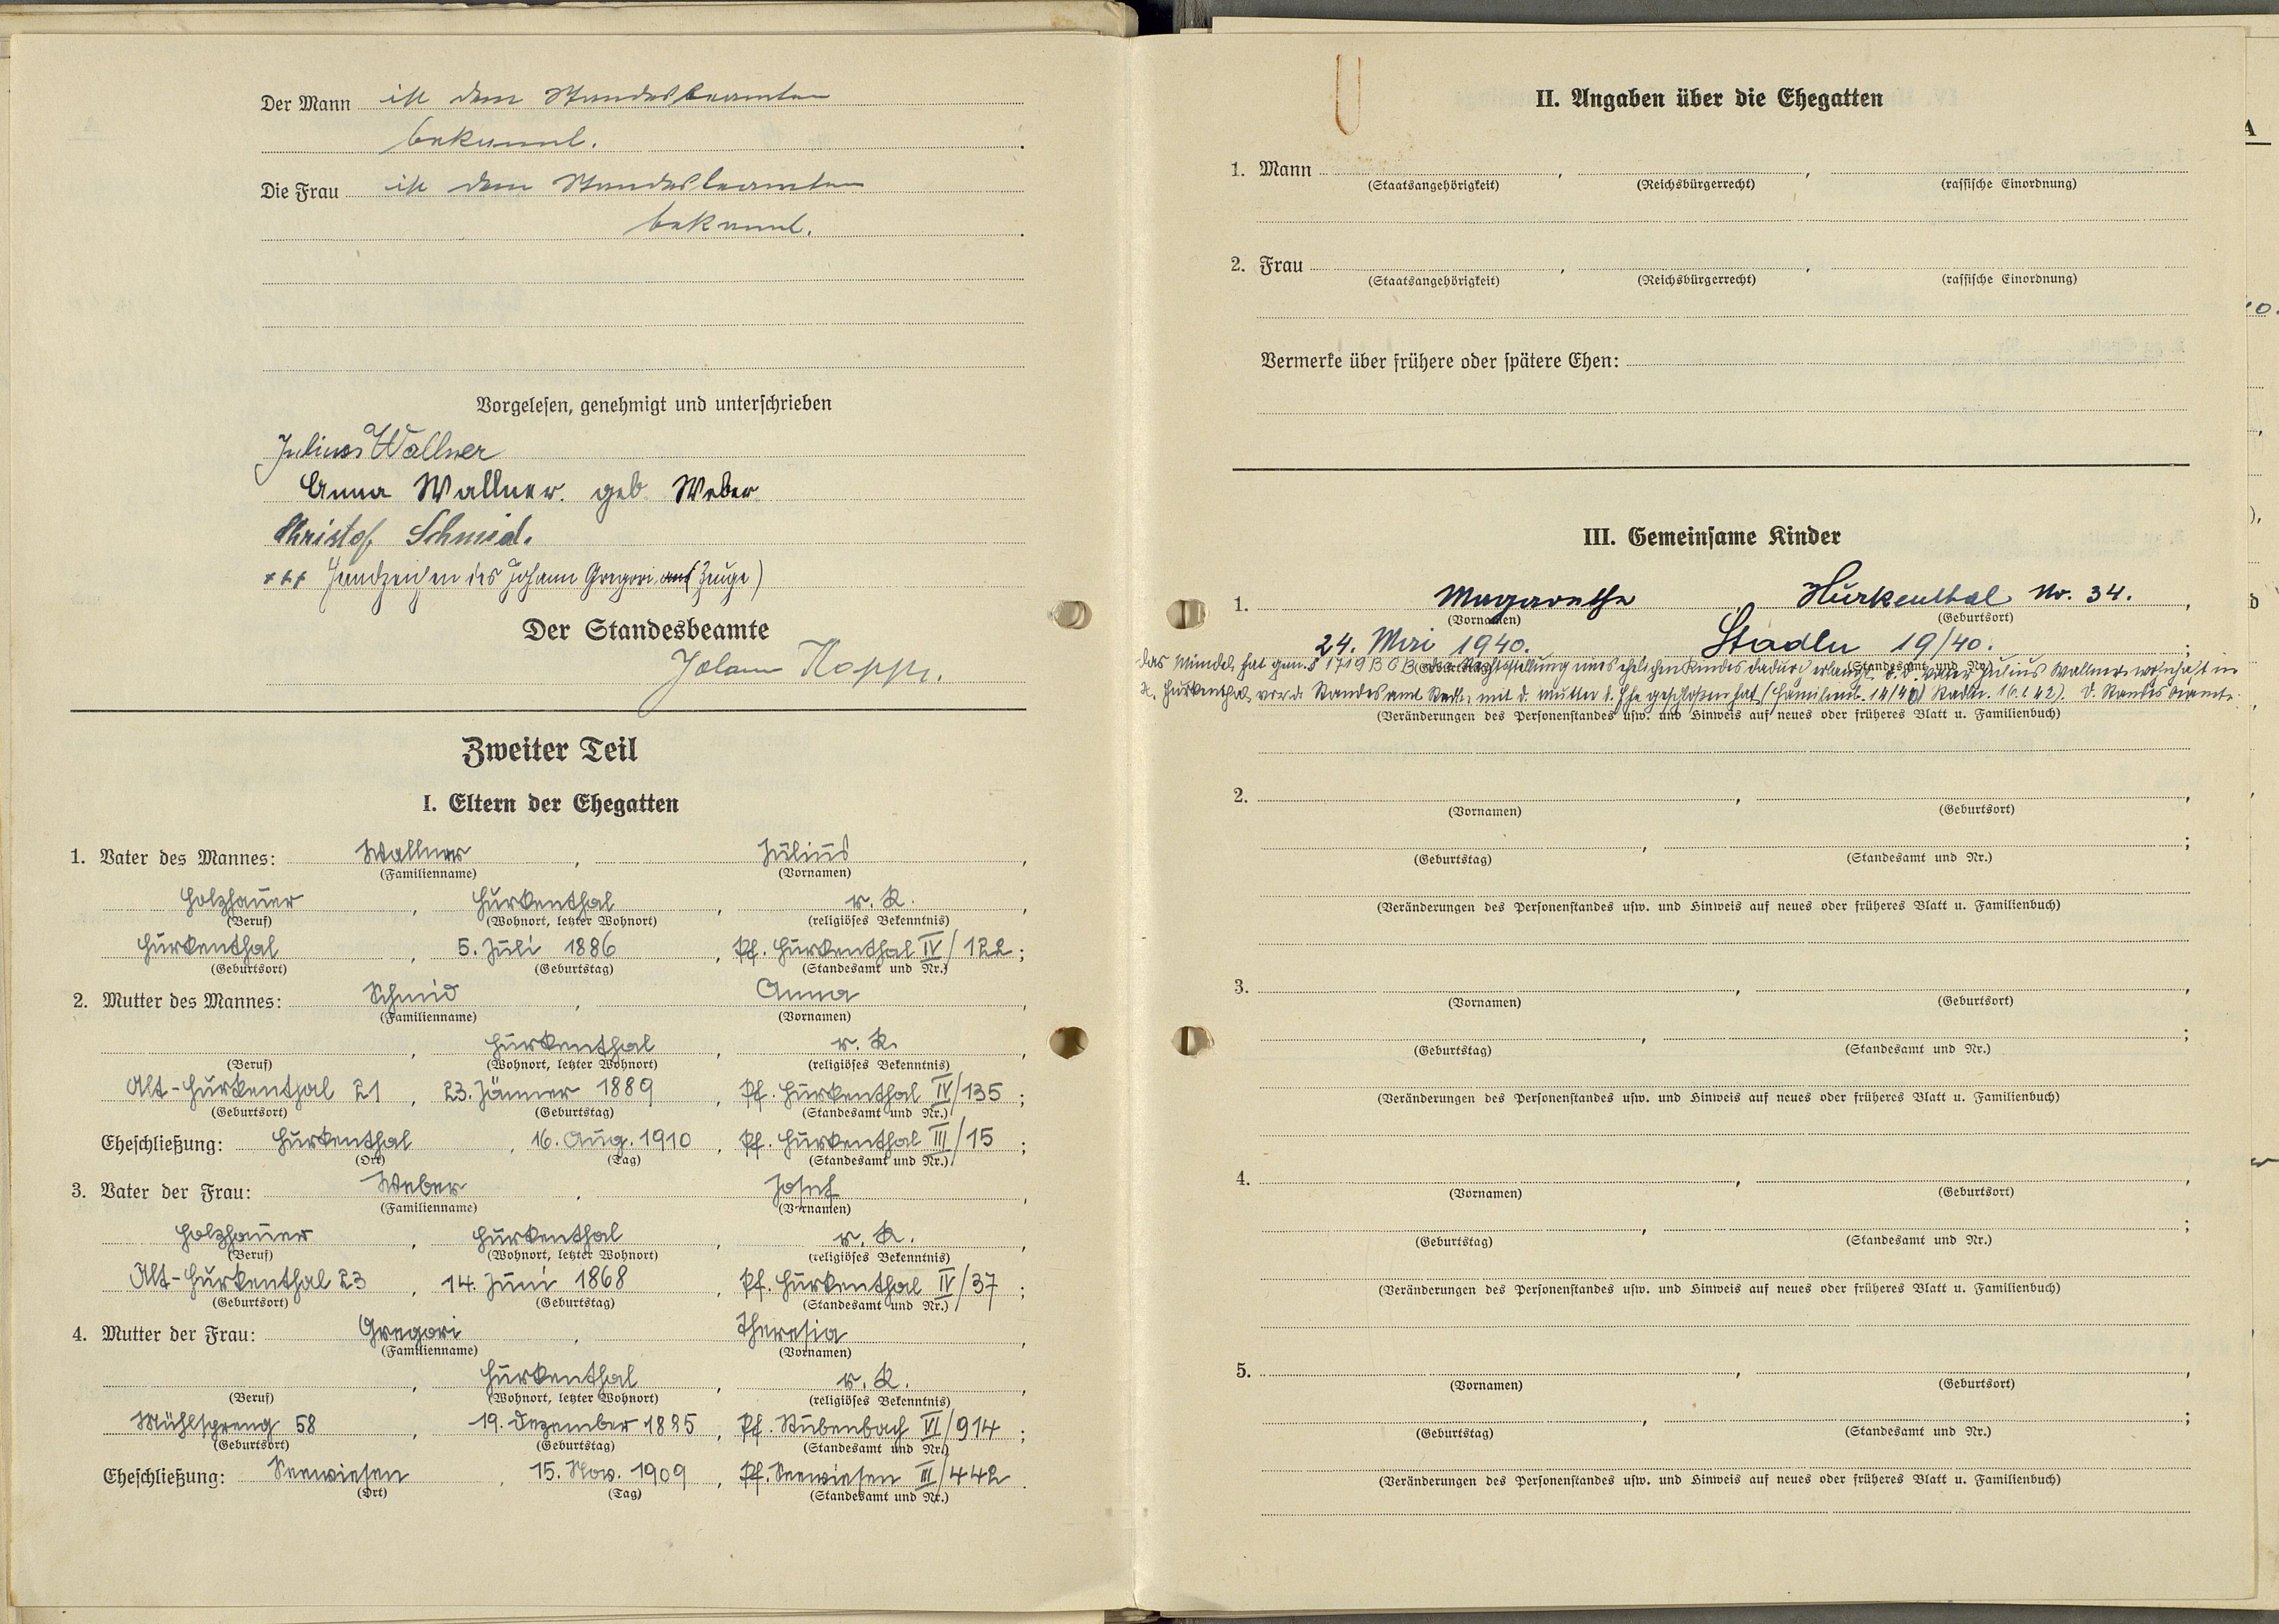 Der Mann ist dem Standesbeamten
bekannt.
Die Frau ist dem Standesbeamten
bekannt.
Vorgelesen, genehmigt und unterschrieben
Julius Wallner
Anna Wallner geb Weber
Christof Schmid.
+++ Handzeichen des Johann Gregori (Zeuge)
Der Standesbeamte
Johann
Zweiter Teil
I. Eltern der Ehegatten
1. Vater des Mannes: Wallner, Julius,
(Familienname) (Vornamen)
Holzhauer, Hurkenthal, r. K.,
(Beruf) (Wohnort, letzter Wohnort) (religiöses Bekenntnis)
Hurkenthal, 5. Juli 1886, Pf. Hurkenthal IV/122;
(Geburtsort) (Geburtstag) (Standesamt und Nr.)
2. Mutter des Mannes: Schmid, Anna,
(Familienname) (Vornamen)
, Hurkenthal, r. K.,
(Beruf) (Wohnort, letzter Wohnort) (religiöses Bekenntnis)
Alt-Hurkenthal 21, 23. Jänner 1889, Pf. Hurkenthal IV/135;
(Geburtsort) (Geburtstag) (Standesamt und Nr.)
Eheschließung: Hurkenthal, 16. Aug. 1910, Pf. Hurkenthal III/15;
(Ort) (Tag) (Standesamt und Nr.)
3. Vater der Frau: Weber, Josef,
(Familienname) (Vornamen)
Holzhauer, Hurkenthal, r. K.,
(Beruf) (Wohnort, letzter Wohnort) (religiöses Bekenntnis)
Alt-Hurkenthal 23, 14. Juni 1868, Pf. Hurkenthal IV/37;
(Geburtsort) (Geburtstag) (Standesamt und Nr.)
4. Mutter der Frau: Gregori, Theresia,
(Familienname) (Vornamen)
, Hurkenthal, r. K.,
(Beruf) (Wohnort, letzter Wohnort) (religiöses Bekenntnis)
Mühlspreng 58, 19. Dezember 1885, Pf. Stubenbach VI/914;
(Geburtsort) (Geburtstag) (Standesamt und Nr.)
Eheschließung: Seewiesen, 15. Nov. 1909, Pf. Seewiesen III/442.
(Ort) (Tag) (Standesamt und Nr.)
II. Angaben über die Ehegatten
1. Mann , ,
(Staatsangehörigkeit) (Reichsbürgerrecht) (rassische Einordnung)
2. Frau , ,
(Staatsangehörigkeit) (Reichsbürgerrecht) (rassische Einordnung)
Vermerke über frühere oder spätere Ehen:
III. Gemeinsame Kinder
1. Margarethe, Hurkenthal Nr. 34.,
(Vornamen) (Geburtsort)
24. Mai 1940. Stadln 19/40.;
(Geburtstag) (Standesamt und Nr.)
Das Mündel hat gem. § 1719 BGB die Rechtsstellung eines ehelichen Kindes dadurch erlangt, d. d. Vater Julius Wallner, wohnhaft in
Hurkenthal vor d. Standesamt Stadln mit d. Mutter d. Ehe geschlossen hat (Stadln. 16.1.42). D. Standesbeamte:
(Veränderungen des Personenstandes usw. und Hinweis auf neues oder früheres Blatt u. Familienbuch)
2. , ,
(Vornamen) (Geburtsort)
, ;
(Geburtstag) (Standesamt und Nr.)
(Veränderungen des Personenstandes usw. und Hinweis auf neues oder früheres Blatt u. Familienbuch)
3. , ,
(Vornamen) (Geburtsort)
, ;
(Geburtstag) (Standesamt und Nr.)
(Veränderungen des Personenstandes usw. und Hinweis auf neues oder früheres Blatt u. Familienbuch)
4. , ,
(Vornamen) (Geburtsort)
, ;
(Geburtstag) (Standesamt und Nr.)
(Veränderungen des Personenstandes usw. und Hinweis auf neues oder früheres Blatt u. Familienbuch)
5. , ,
(Vornamen) (Geburtsort)
, ;
(Geburtstag) (Standesamt und Nr.)
(Veränderungen des Personenstandes usw. und Hinweis auf neues oder früheres Blatt u. Familienbuch)